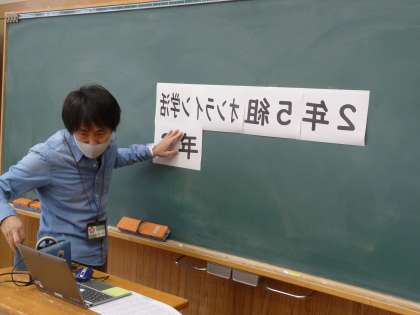 2年5組オンライン学活
年